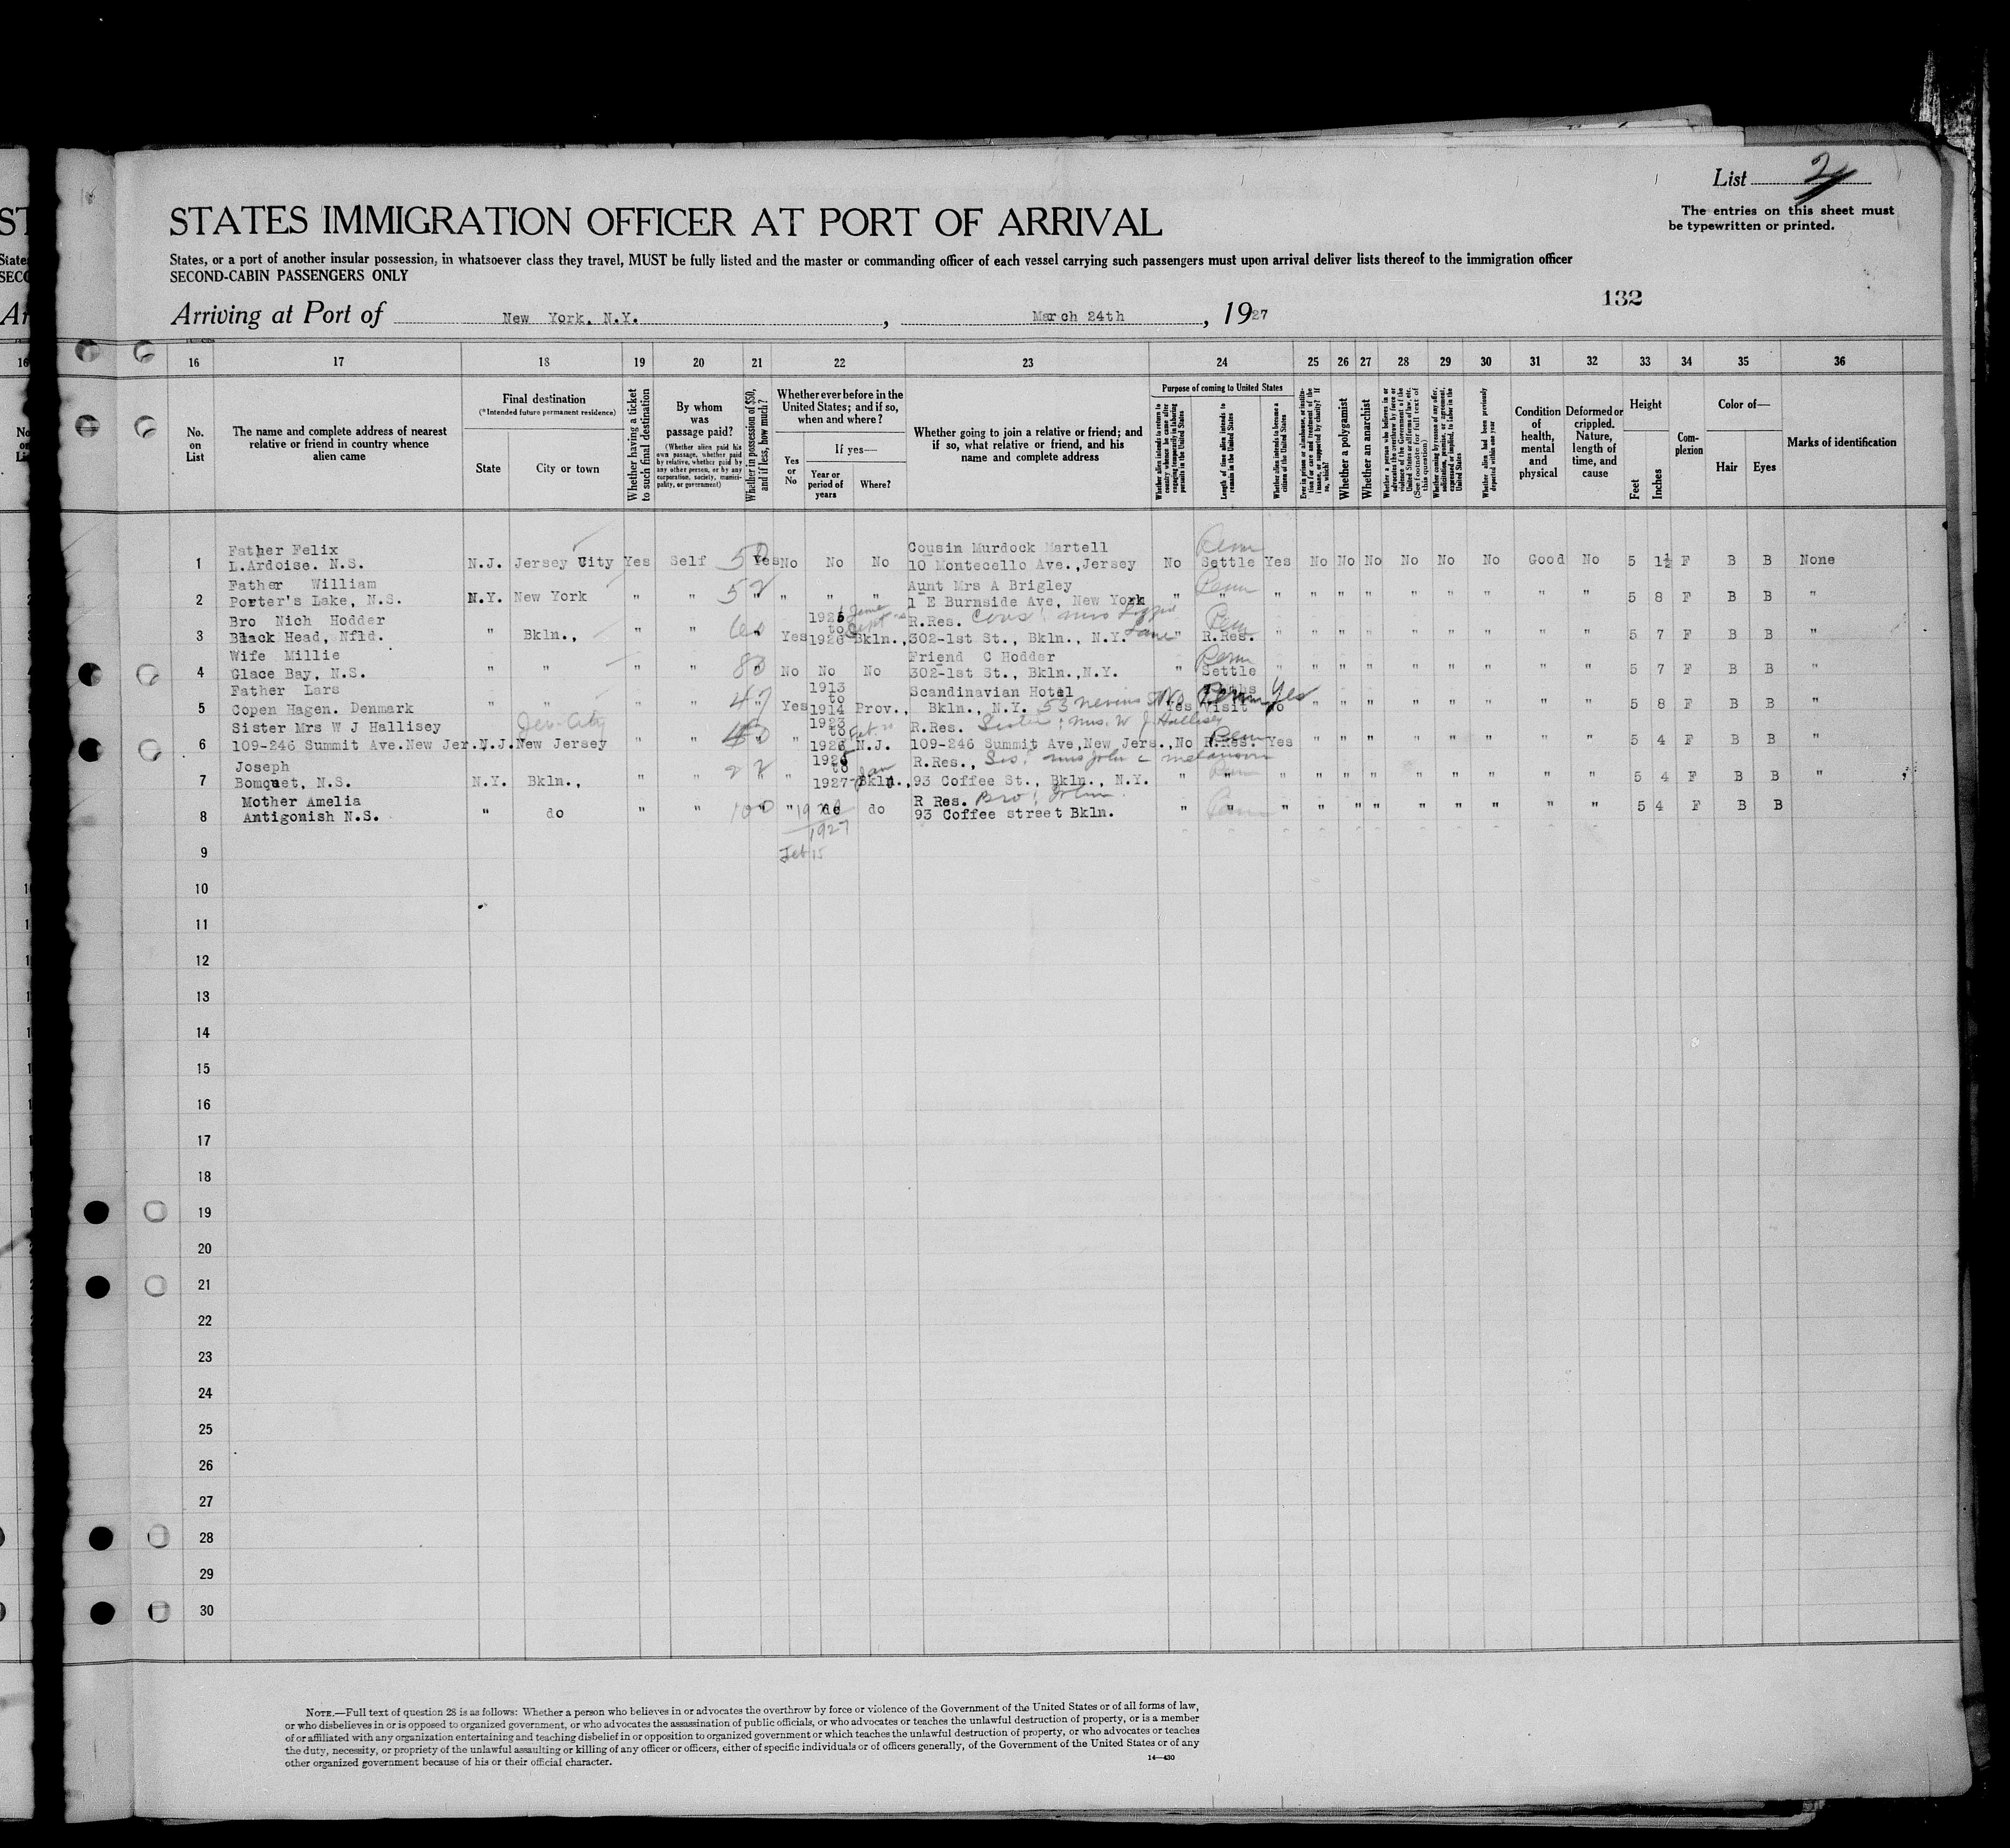 List 2
The entries on this sheet must
be typewritten or printed.
STATES IMMIGRATION OFFICER AT PORT OF ARRIVAL
States, or a port of another insular possession, in whatsoever class they travel, MUST be fully listed and the master or commanding officer of each vessel carrying such passengers must upon arrival deliver lists thereof to the immigration officer
SECOND-CABIN PASSENGERS ONLY
132
Arriving at Port of New York, N.Y. , March 24th , 1927
16 17 18 19 20 21 22 23 24 25 26 27 28 29 30 31 32 33 34 35 36
No. on List
The name and complete address of nearest relative or friend in country whence alien came
Final destination
(*Intended future permanent residence)
State
City or town
Whether having a ticket to such final destination
By whom was passage paid?
(Whether alien paid his own passage, whether paid by relative, whether paid by any other person, or by any corporation, society, municipality, or government)
Whether in possession of $50, and if less, how much?
Whether ever before in the United States; and if so, when and where?
Yes or No
If yes—
Year or period of years
Where?
Whether going to join a relative or friend; and if so, what relative or friend, and his name and complete address
Purpose of coming to United States
Whether alien intends to return to country whence he came after engaging temporarily in laboring pursuits in the United States
Length of time alien intends to remain in the United States
Whether alien intends to become a citizen of the United States
Ever in prison or almshouse, or institution for care and treatment of the insane, or supported by charity? If so, which?
Whether a polygamist
Whether an anarchist
Whether a person who believes in or advocates the overthrow by force or violence of the Government of the United States or all forms of law, etc. (See footnote for full text of this question)
Whether coming by reason of any offer, solicitation, promise, or agreement, expressed or implied, to labor in the United States
Whether alien had been previously deported within one year
Condition of health, mental and physical
Deformed or crippled. Nature, length of time, and cause
Height
Feet
Inches
Complexion
Color of—
Hair
Eyes
Marks of identification
1 Father Felix L.Ardoise. N.S. N.J. Jersey City Yes Self 50 Yes No No No Cousin Murdock Martell 10 Montecello Ave.,Jersey No Perm Settle Yes No No No No No No Good No 5 1½ F B B None
2 Father William Porter's Lake, N.S. N.Y. New York " " 52 " " " " Aunt Mrs A Brigley 1 E Burnside Ave, New York " Perm " " " " " " " " " " 5 8 F B B "
3 Bro Nich Hodder Black Head, Nfld. " Bkln., " " 60 " Yes to 1926 Bkln., R.Res. Cous: Miss Lane 302-1st St., Bkln., N.Y. " Perm R.Res. " " " " " " " " " 5 7 F B B "
4 Wife Millie Glace Bay, N.S. " " " " 80 " No No No Friend C Hodder 302-1st St., Bkln.,N.Y. " Perm Settle " " " " " " " " " 5 7 F B B "
5 Father Lars Copen Hagen. Denmark " " " " 47 " Yes 1913 to 1914 Prov., Scandinavian Hotel Bkln., N.Y. 53 Nevins St Yes No Visit Perm No Yes " " " " " " " " 5 8 F B B "
6 Sister Mrs W J Hallisey 109-246 Summit Ave.New Jer. N.J. New Jersey Jer. City " " " " 1923 to N.J. R.Res. Sister: Mrs. W J Hallisey 109-246 Summit Ave,New Jers., No Perm R.Res. Yes " " " " " " " " 5 4 F B B "
7 Joseph Bomquet, N.S. N.Y. Bkln., " " " " to 1927 Jan Bkln., R.Res., Sis: Mrs John C 93 Coffee St., Bkln., N.Y. " Perm " " " " " " " " " " 5 4 F B B "
8 Mother Amelia Antigonish N.S. " do " " 100 " " do 1927 Feb 15 do R Res. Bro: John 93 Coffee street Bkln. " Perm " " " " " " " " " " 5 4 F B B
9
10
11
12
13
14
15
16
17
18
19
20
21
22
23
24
25
26
27
28
29
30
NOTE.—Full text of question 28 is as follows: Whether a person who believes in or advocates the overthrow by force or violence of the Government of the United States or of all forms of law,
or who disbelieves in or is opposed to organized government, or who advocates the assassination of public officials, or who advocates or teaches the unlawful destruction of property, or is a member
of or affiliated with any organization entertaining and teaching disbelief in or opposition to organized government or which teaches the unlawful destruction of property, or who advocates or teaches
the duty, necessity, or propriety of the unlawful assaulting or killing of any officer or officers, either of specific individuals or of officers generally, of the Government of the United States or of any
other organized government because of his or their official character.
14—430